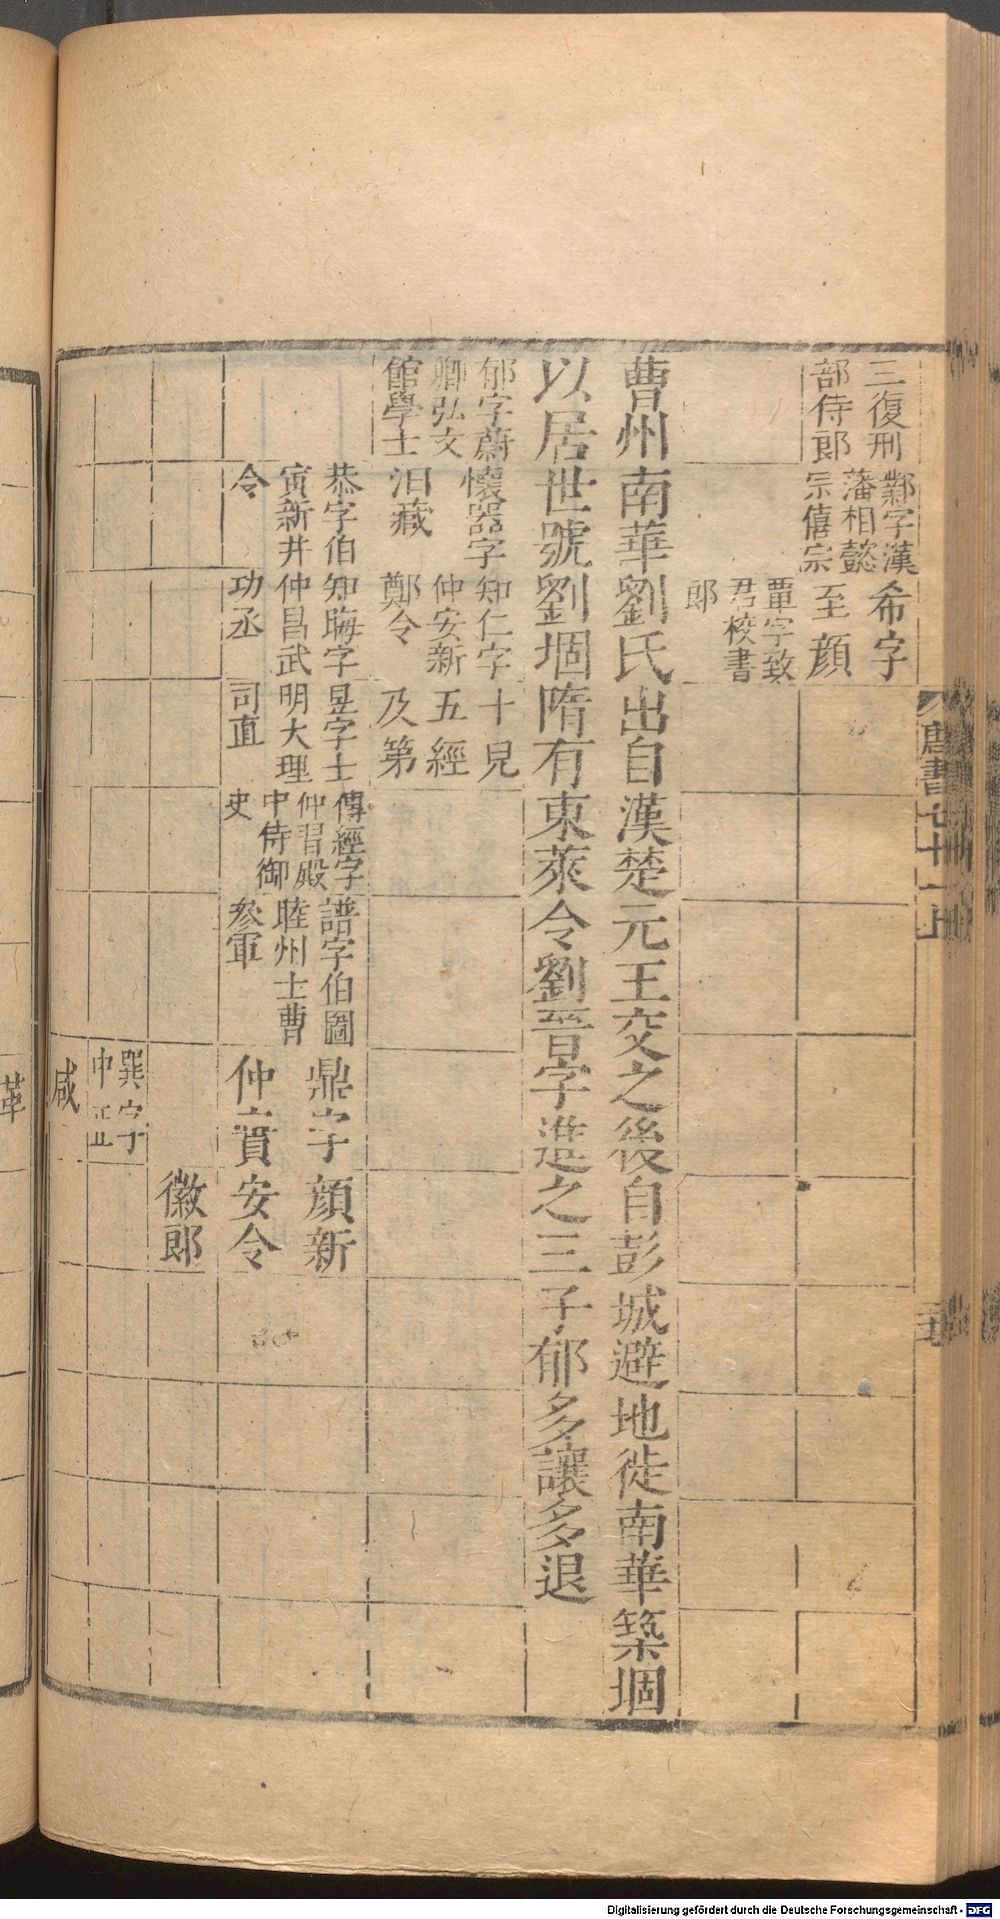 三復刑
部侍郎
鄴字漢
藩相懿
宗僖宗
希字
至顔
覃字致
君校書
郎
曹州南華劉氏出自漢楚元王交之後自彭城避地徙南華築堌
以居世號劉堌隋有東萊令劉晉字進之三子郁多讓多退
郁字蔚
卿弘文
館學士
懷器字
汨藏
知仁字
仲安新
鄭令
十見
五經
及第
恭字伯
寅新井
令
知晦字
仲昌武
功丞
昱字士
明大理
司直
傳經字
仲習殿
中侍御
史
譜字伯圖
睦州士曹
參軍
鼎字
仲賁
顔新
安令
徽郎
巽字
中正
咸
革
唐書七十一上
Digitalisierung gefördert durch die Deutsche Forschungsgemeinschaft - DFG